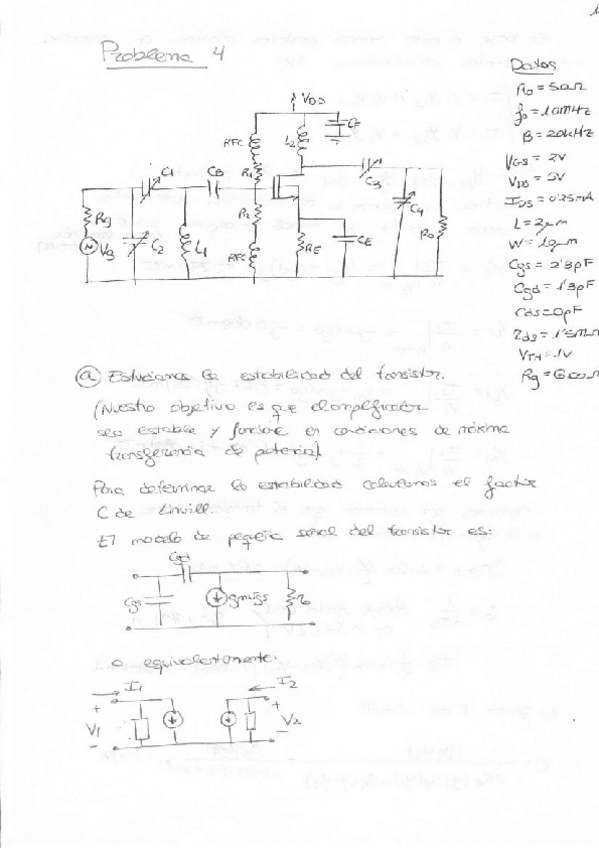 Problema 4
Datos
Ro = 50Ω
fo = 10MHz
B = 20kHz
VGS = 2V
VDS = 5V
IDS = 0.25mA
L = 2μm
W = 10μm
Cgs = 2'3pF
Cgd = 1'3pF
Cds = 0pF
VTH = 1V
VDD
CE
RFC
L2
C1
CB
R1
C3
Rg
R2
C4
Vg
C2
L1
RFC
RE
CE
Ro
a) Estudiamos la estabilidad del transistor.
(Nuestro objetivo es que el amplificador
sea estable y funcione en condiciones de máxima
transferencia de potencia)
Para determinar la estabilidad calculamos el factor
C de Linvill.
El modelo de pequeña señal del transistor es:
Cgd
Cgs
gmvgs
ro
o equivalentemente:
I1
I2
+
+
V1
V2
-
-